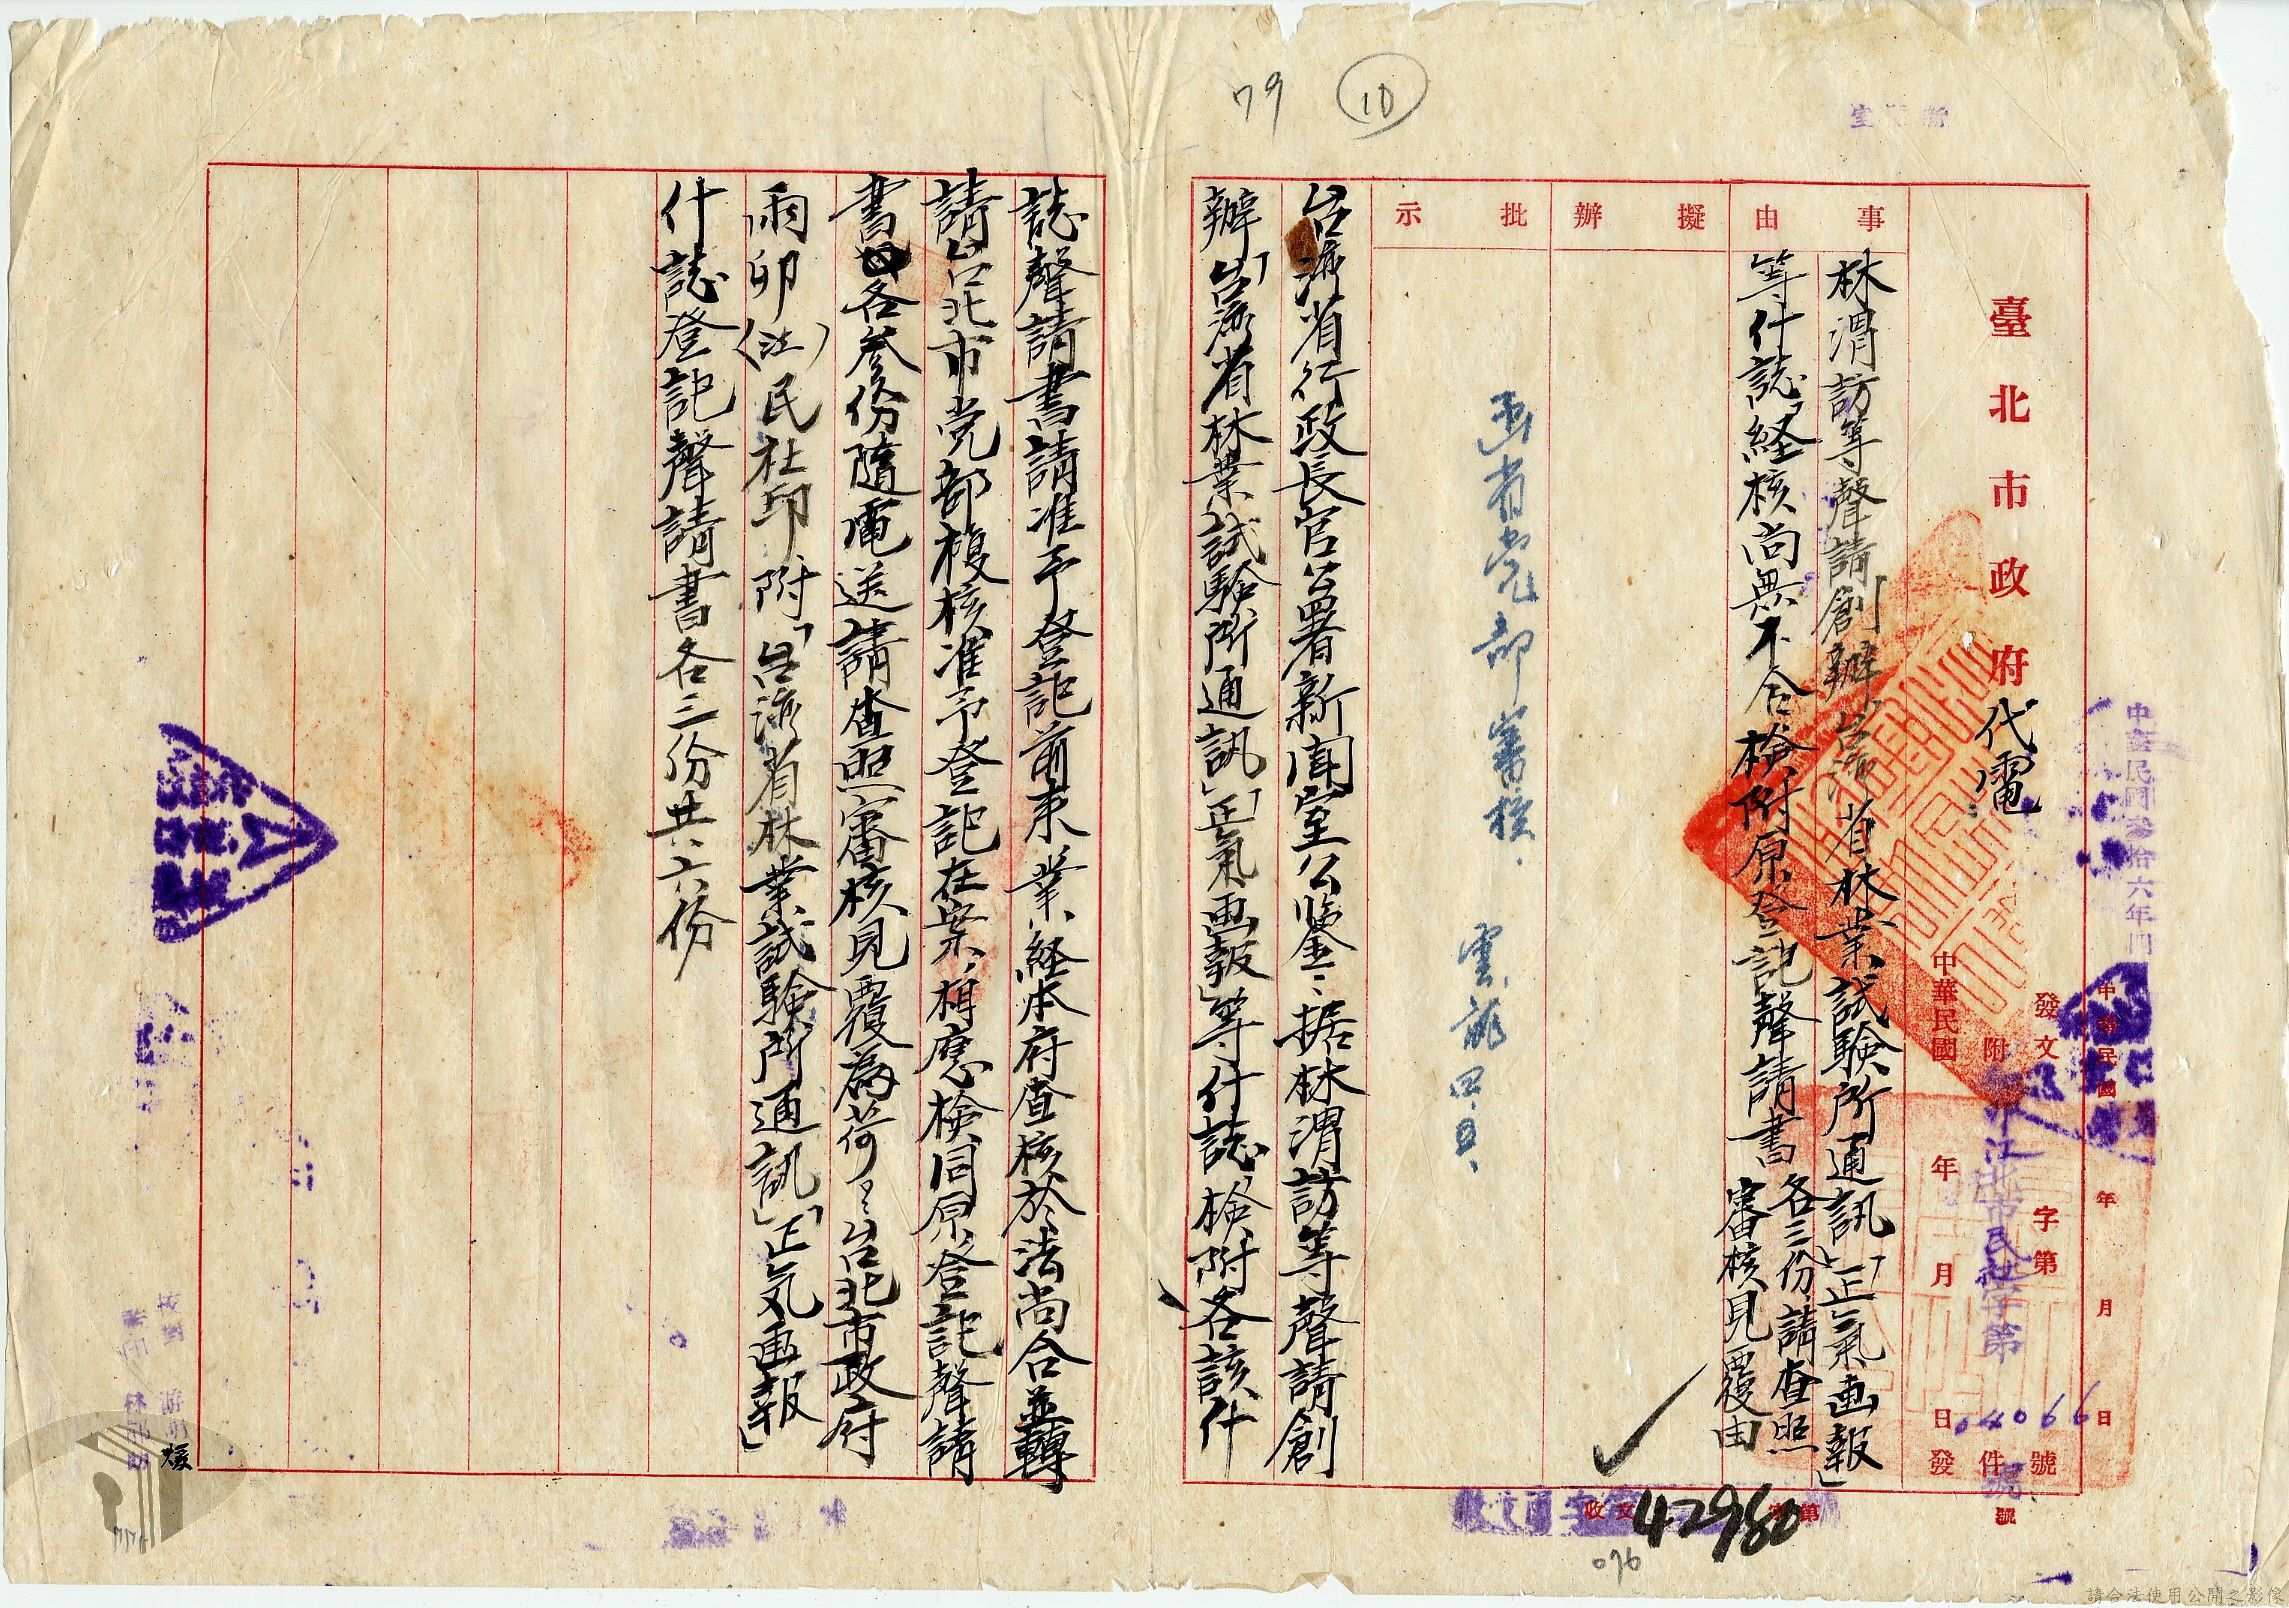 79
10
臺北市政府代電
發文 字第 號
附 件
中華民國 年 月 日發
北市民社字第 04099 號
卯江
中華民國 年 月 日
中華民國參拾六年
事由
林渭訪等聲請創辦「台灣省林業試驗所通訊」「正氣画報」
等什誌、経核尚無不合検附原登記聲請書各三份、請查照
審核見覆由
擬辦
批示
函省党部審核.
台灣省行政長官公署新聞室公鑒：据林渭訪等聲請創
辦「台湾省林業試驗所通訊」「正氣画報」等什誌、検附各該什
誌聲請書請准予登記前来業経本府查核於法尚合並轉
請台北市党部複核准予登記在案、相應検同原登記聲請
書各叁份隨電送請查照審核見覆為荷：台北市政府
雨卯（江）民社印、附「台湾省林業試験所通訊」「正気画報」
什誌登記聲請書各三份共六份
收文 字第 42980 號
076
請合法使用公開之影像